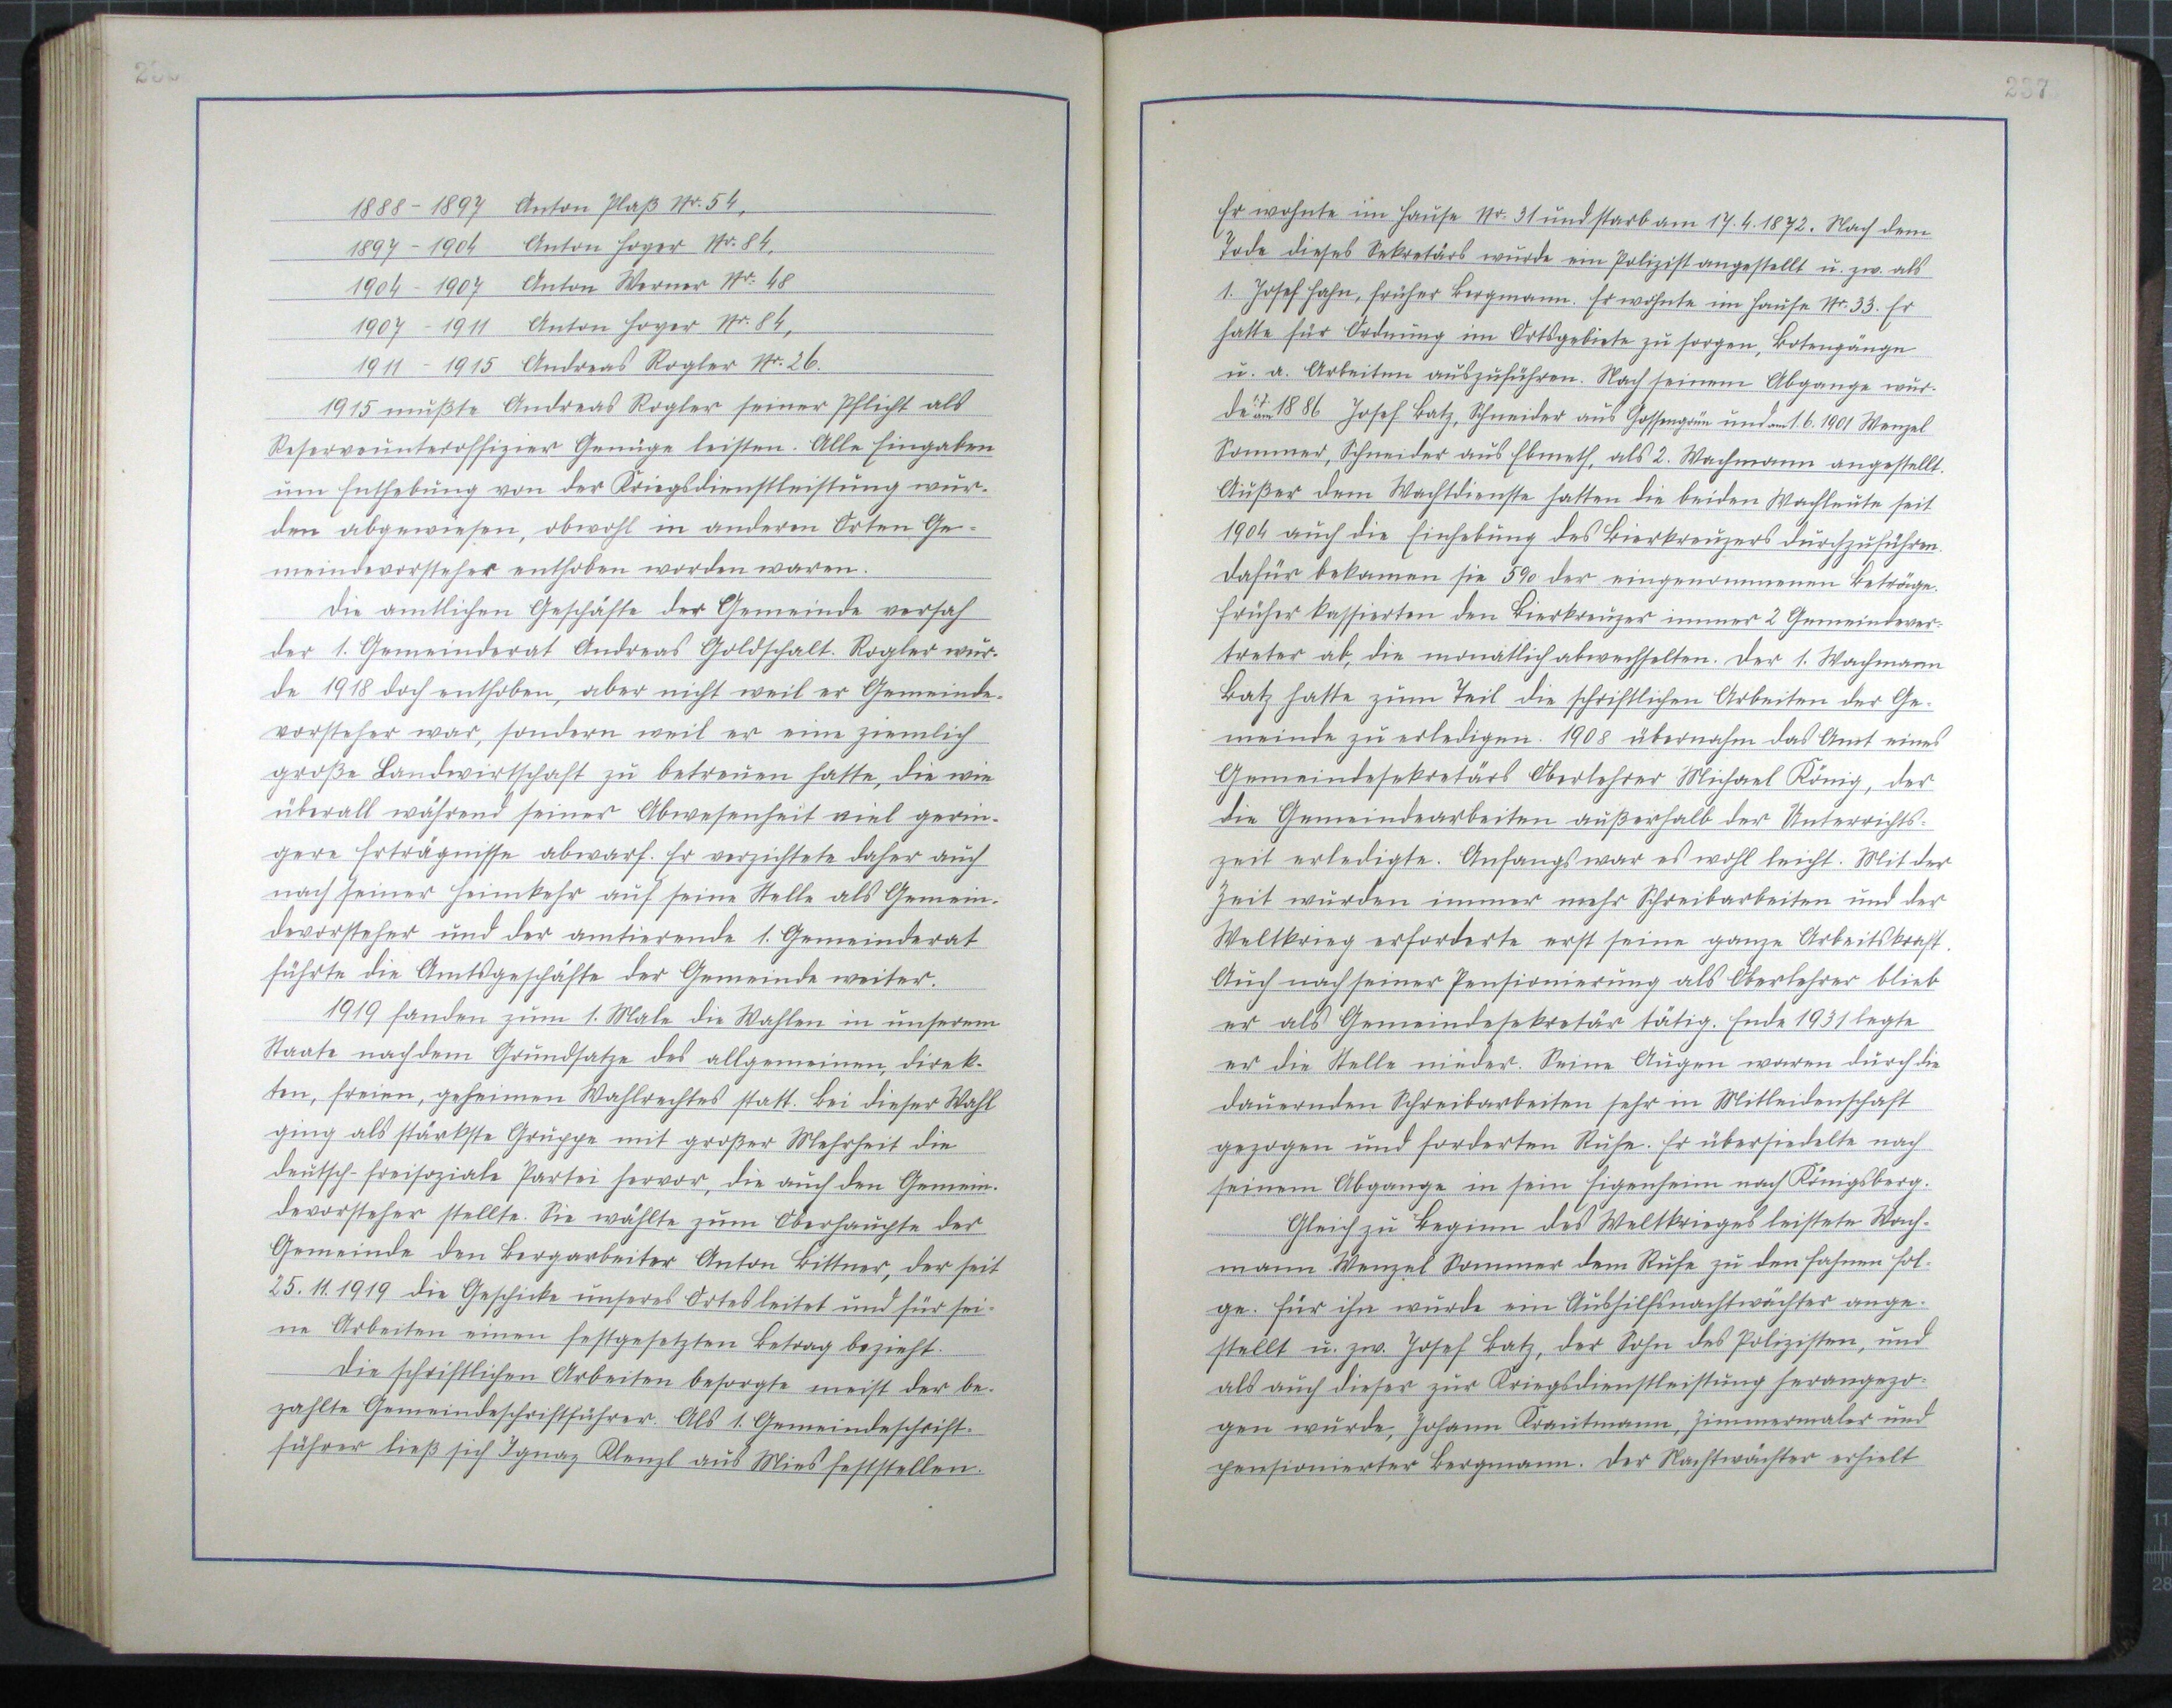 1888 - 1897 Anton Plaß Nr. 54,
1897 - 1904 Anton Hoyer Nr. 84,
1904 - 1907 Anton Werner Nr. 48
1907 - 1911 Anton Hoyer Nr. 84,
1911 - 1915 Andreas Rogler Nr. 26.
1915 mußte Andreas Rogler seiner Pflicht als
Reserveunteroffizier Genüge leisten. Alle Eingaben
um Enthebung von der Kriegsdienstleistung wur-
den abgewiesen, obwohl in anderen Orten Ge-
meindevorsteher enthoben worden waren.
Die amtlichen Geschäfte der Gemeinde versah
der 1. Gemeinderat Andreas Goldschalt. Rogler wur-
de 1918 doch enthoben, aber nicht weil er Gemeinde-
vorsteher war, sondern weil er eine ziemlich
große Landwirtschaft zu betreuen hatte, die wie
überall während seiner Abwesenheit viel gerin-
gere Erträgnisse abwarf. Er verzichtete daher auch
nach seiner Heimkehr auf seine Stelle als Gemein-
devorsteher und der amtierende 1. Gemeinderat
führte die Amtsgeschäfte der Gemeinde weiter.
1919 fanden zum 1. Male die Wahlen in unserem
Staate nach dem Grundsatze des allgemeinen, direk-
ten, freien, geheimen Wahlrechtes statt. Bei dieser Wahl
ging als stärkste Gruppe mit großer Mehrheit die
deutsch-freisoziale Partei hervor, die auch den Gemein-
devorsteher stellte. Sie wählte zum Oberhaupte der
Gemeinde den Bergarbeiter Anton Bittner, der seit
25. 11. 1919 die Geschicke unseres Ortes leitet und für sei-
ne Arbeiten einen festgesetzten Betrag bezieht.
Die schriftlichen Arbeiten besorgte meist der be-
zahlte Gemeindeschriftführer. Als 1. Gemeindeschrift-
führer ließ sich Ignaz Klenzl aus Mies feststellen.
237
Er wohnte im Hause Nr. 31 und starb am 17. 4. 1872. Nach dem
Tode dieses Sekretärs wurde ein Polizist angestellt u. zw. als
1. Josef Hahn, früher Bergmann. Er wohnte im Hause Nr. 33. Er
hatte für Ordnung im Ortsgebiete zu sorgen, Botengänge
u. a. Arbeiten auszuführen. Nach seinem Abgange wur-
de am 1886 Josef Batz, Schneider aus Gossengrün und am 1. 6. 1901 Wenzel
Sommer, Schneider aus Ebmeth, als 2. Wachmann angestellt.
Außer dem Wachtdienste hatten die beiden Wachleute seit
1904 auch die Einhebung des Bierkreuzers durchzuführen.
Dafür bekamen sie 5% der eingenommenen Beträge.
Früher kassierten den Bierkreuzer immer 2 Gemeindever-
treter ab, die monatlich abwechselten. Der 1. Wachmann
Batz hatte zum Teil die schriftlichen Arbeiten der Ge-
meinde zu erledigen. 1908 übernahm das Amt eines
Gemeindesekretärs Oberlehrer Michael König, der
die Gemeindearbeiten außerhalb der Unterrichts-
zeit erledigte. Anfangs war es wohl leicht. Mit der
Zeit wurden immer mehr Schreibarbeiten und der
Weltkrieg erforderte erst seine ganze Arbeitskraft.
Auch nach seiner Pensionierung als Oberlehrer blieb
er als Gemeindesekretär tätig. Ende 1931 legte
er die Stelle nieder. Seine Augen waren durch die
dauernden Schreibarbeiten sehr in Mitleidenschaft
gezogen und forderten Ruhe. Er übersiedelte nach
seinem Abgange in sein Eigenheim nach Königsberg.
Gleich zu Beginn des Weltkrieges leistete Wach-
mann Wenzel Sommer dem Rufe zu den Fahnen Fol-
ge. Für ihn wurde ein Aushilfsnachtwächter ange-
stellt u. zw. Josef Batz, der Sohn des Polizisten, und
als auch dieser zur Kriegsdienstleistung herangezo-
gen wurde, Johann Krautmann, Zimmermaler und
pensionierter Bergmann. Der Nachtwächter erhielt